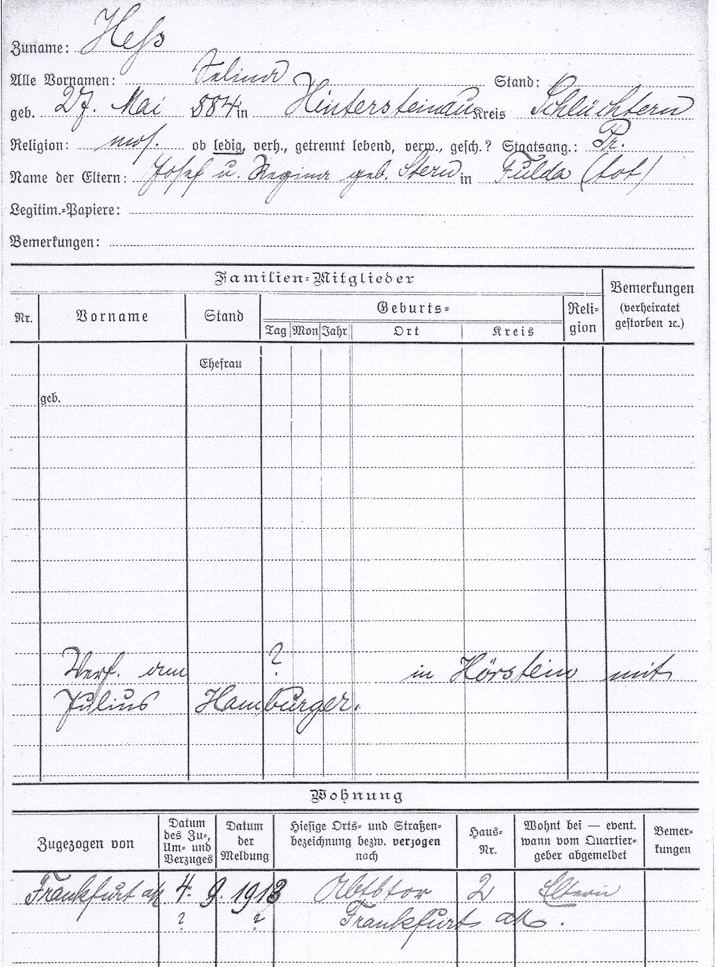 Zuname: Heß
Alle Vornamen: Selma Stand:
geb. 27. Mai 884 in Hintersteinau Kreis Schlüchtern
Religion: mos. ob ledig, verh., getrennt lebend, verw., gesch.? Staatsang.: Pr.
Name der Eltern: Josef u. Regina geb. Stern in Fulda (tot)
Legitim.-Papiere:
Bemerkungen:
Familien-Mitglieder
Nr. Vorname Stand Geburts- Tag Mon Jahr Ort Kreis Religion Bemerkungen (verheiratet gestorben ꝛc.)
Ehefrau
geb.
Verh. am ? in Hörstein mit
Julius Hamburger.
Wohnung
Zugezogen von Datum des Zu-, Um- und Verzuges Datum der Meldung Hiesige Orts- und Straßenbezeichnung bezw. verzogen nach Haus-Nr. Wohnt bei — event. wann vom Quartiergeber abgemeldet Bemerkungen
Frankfurt a/M 4. 9. 1913 Abtstor 2 Eltern
? ? Frankfurt a/M.